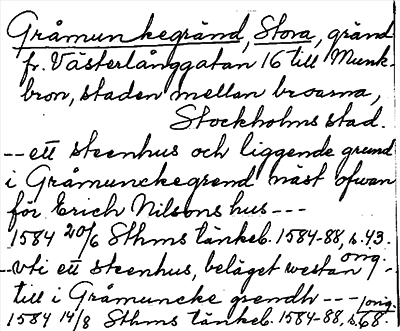 Gråmunkegränd, Stora, gränd
fr. Västerlånggatan 16 till Munk-
bron, staden mellan broarna,
Stockholms stad.
-- ett steenhus och liggende grund
i Gråmunckegrend näst ofwan
för Erich Nilsons hus ---
1584 20/6 Sthms tänkeb. 1584-88, s. 43.
orig.
-- vti ett steenhus, beläget westan -
till i Gråmuncke grendh ---
orig.
1584 14/8 Sthms tänkeb. 1584-88, s. 68.